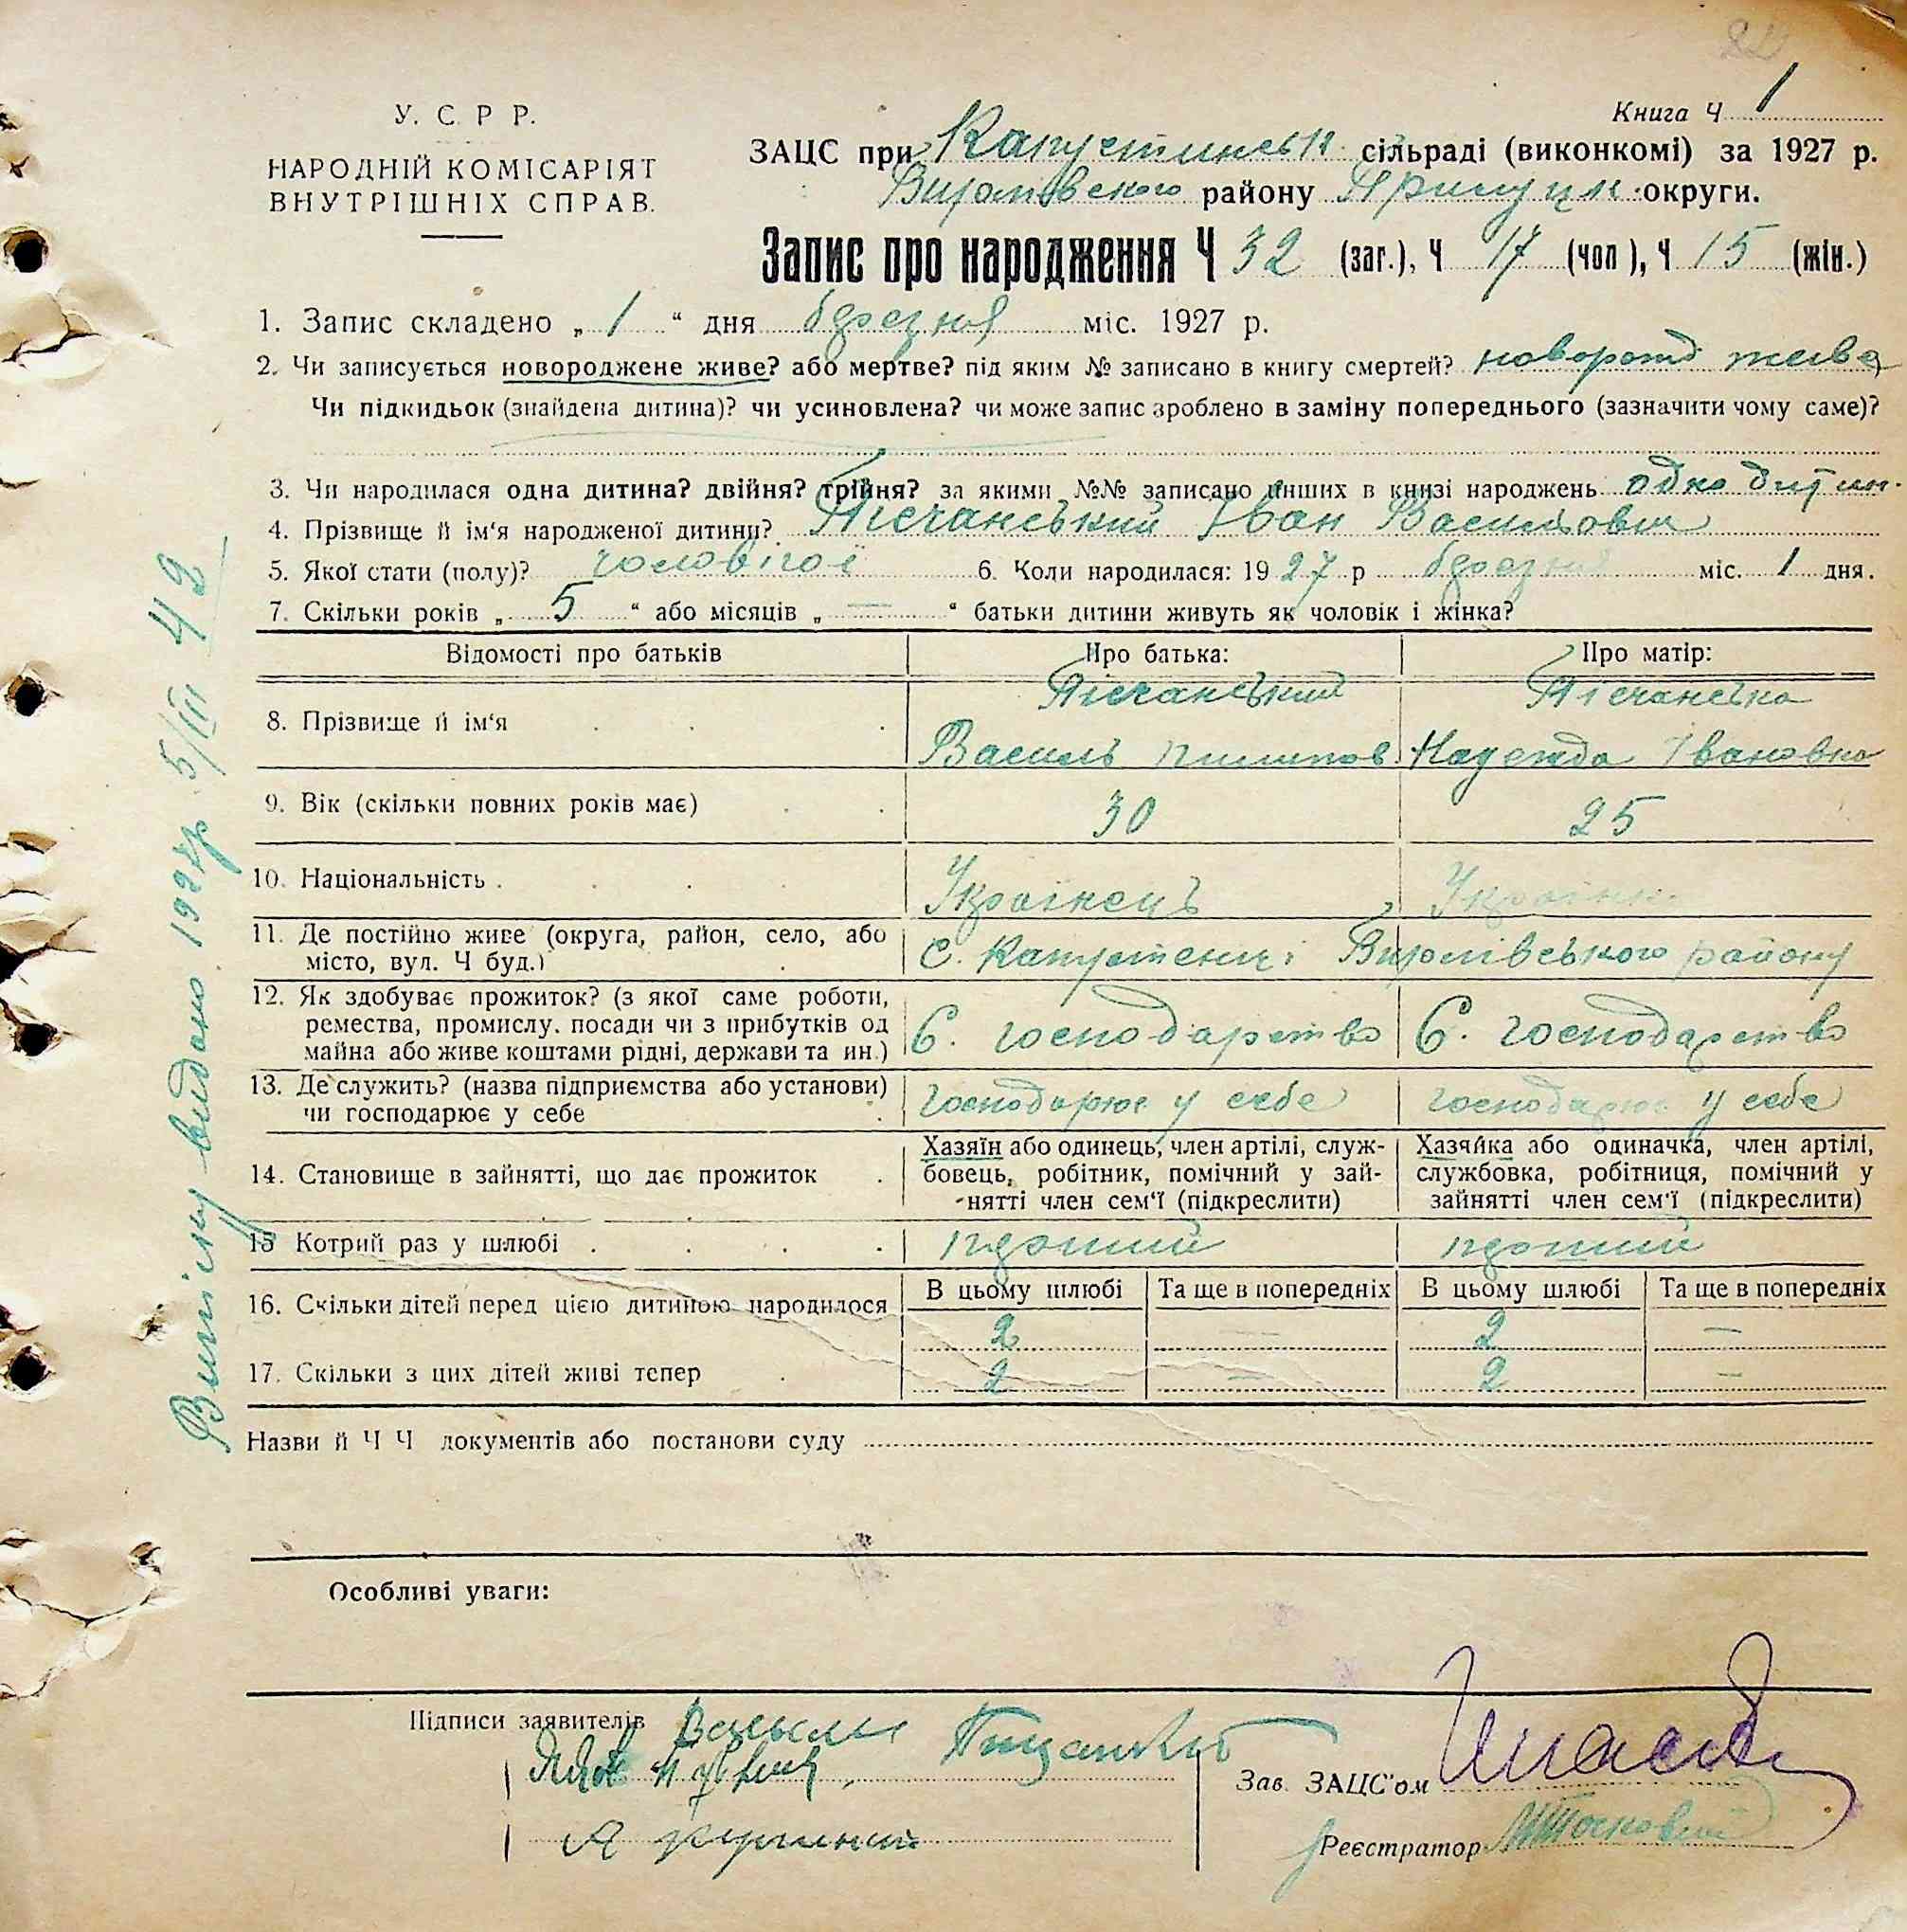 Книга Ч 1
У. С. Р. Р.
НАРОДНІЙ КОМІСАРІЯТ
ВНУТРІШНІХ СПРАВ.
ЗАЦС при Капустинськ сільраді (виконкомі) за 1927 р.
району Прилуцьк округи.
Запис про народження Ч 32 (заг.), Ч 17 (чол), Ч 15 (жін.)
1. Запис складено „ 1 “ дня березня міс. 1927 р.
2. Чи записується новороджене живе? або мертве? під яким № записано в книгу смертей? новорожд жива
Чи підкидьок (знайдена дитина)? чи усиновлена? чи може запис зроблено в заміну попереднього (зазначити чому саме)?
3. Чи народилася одна дитина? двійня? трійня? за якими №№ записано інших в книзі народжень одна дитин.
4. Прізвище й ім'я народженої дитини? Пісчанський Іван Васильович
5. Якої стати (полу)? чоловічої 6. Коли народилася: 1927 р березня міс. 1 дня.
7. Скільки років „ 5 “ або місяців „ — “ батьки дитини живуть як чоловік і жінка?
Відомості про батьків Про батька: Про матір:
Пісчанський Пісчанська
8. Прізвище й ім'я Василь Пилипов. Надежда Івановна
9. Вік (скільки повних років має) 30 25
10. Національність Українець Українк.
11. Де постійно живе (округа, район, село, або
місто, вул. Ч буд.) С. Капустенці району
12. Як здобуває прожиток? (з якої саме роботи,
ремества, промислу, посади чи з прибутків од
майна або живе коштами рідні, держави та ин.) С. господарство С. господарство
13. Де служить? (назва підприємства або установи)
чи господарює у себе господарює у себе господарює у себе
14. Становище в зайнятті, що дає прожиток
Хазяїн або одинець, член артілі, служ-
бовець, робітник, помічний у зай-
нятті член сем'ї (підкреслити)
Хазяйка або одиначка, член артілі,
службовка, робітниця, помічний у
зайнятті член сем'ї (підкреслити)
15 Котрий раз у шлюбі перший перший
В цьому шлюбі Та ще в попередніх В цьому шлюбі Та ще в попередніх
16. Скільки дітей перед цією дитиною народилося 2 — 2 —
17. Скільки з цих дітей живі тепер 2 — 2 —
Назви й Ч Ч документів або постанови суду
Особливі уваги:
Підписи заявителів
Зав. ЗАЦС'ом
Реєстратор
Виписку видано 1927р 5/III Ч 2